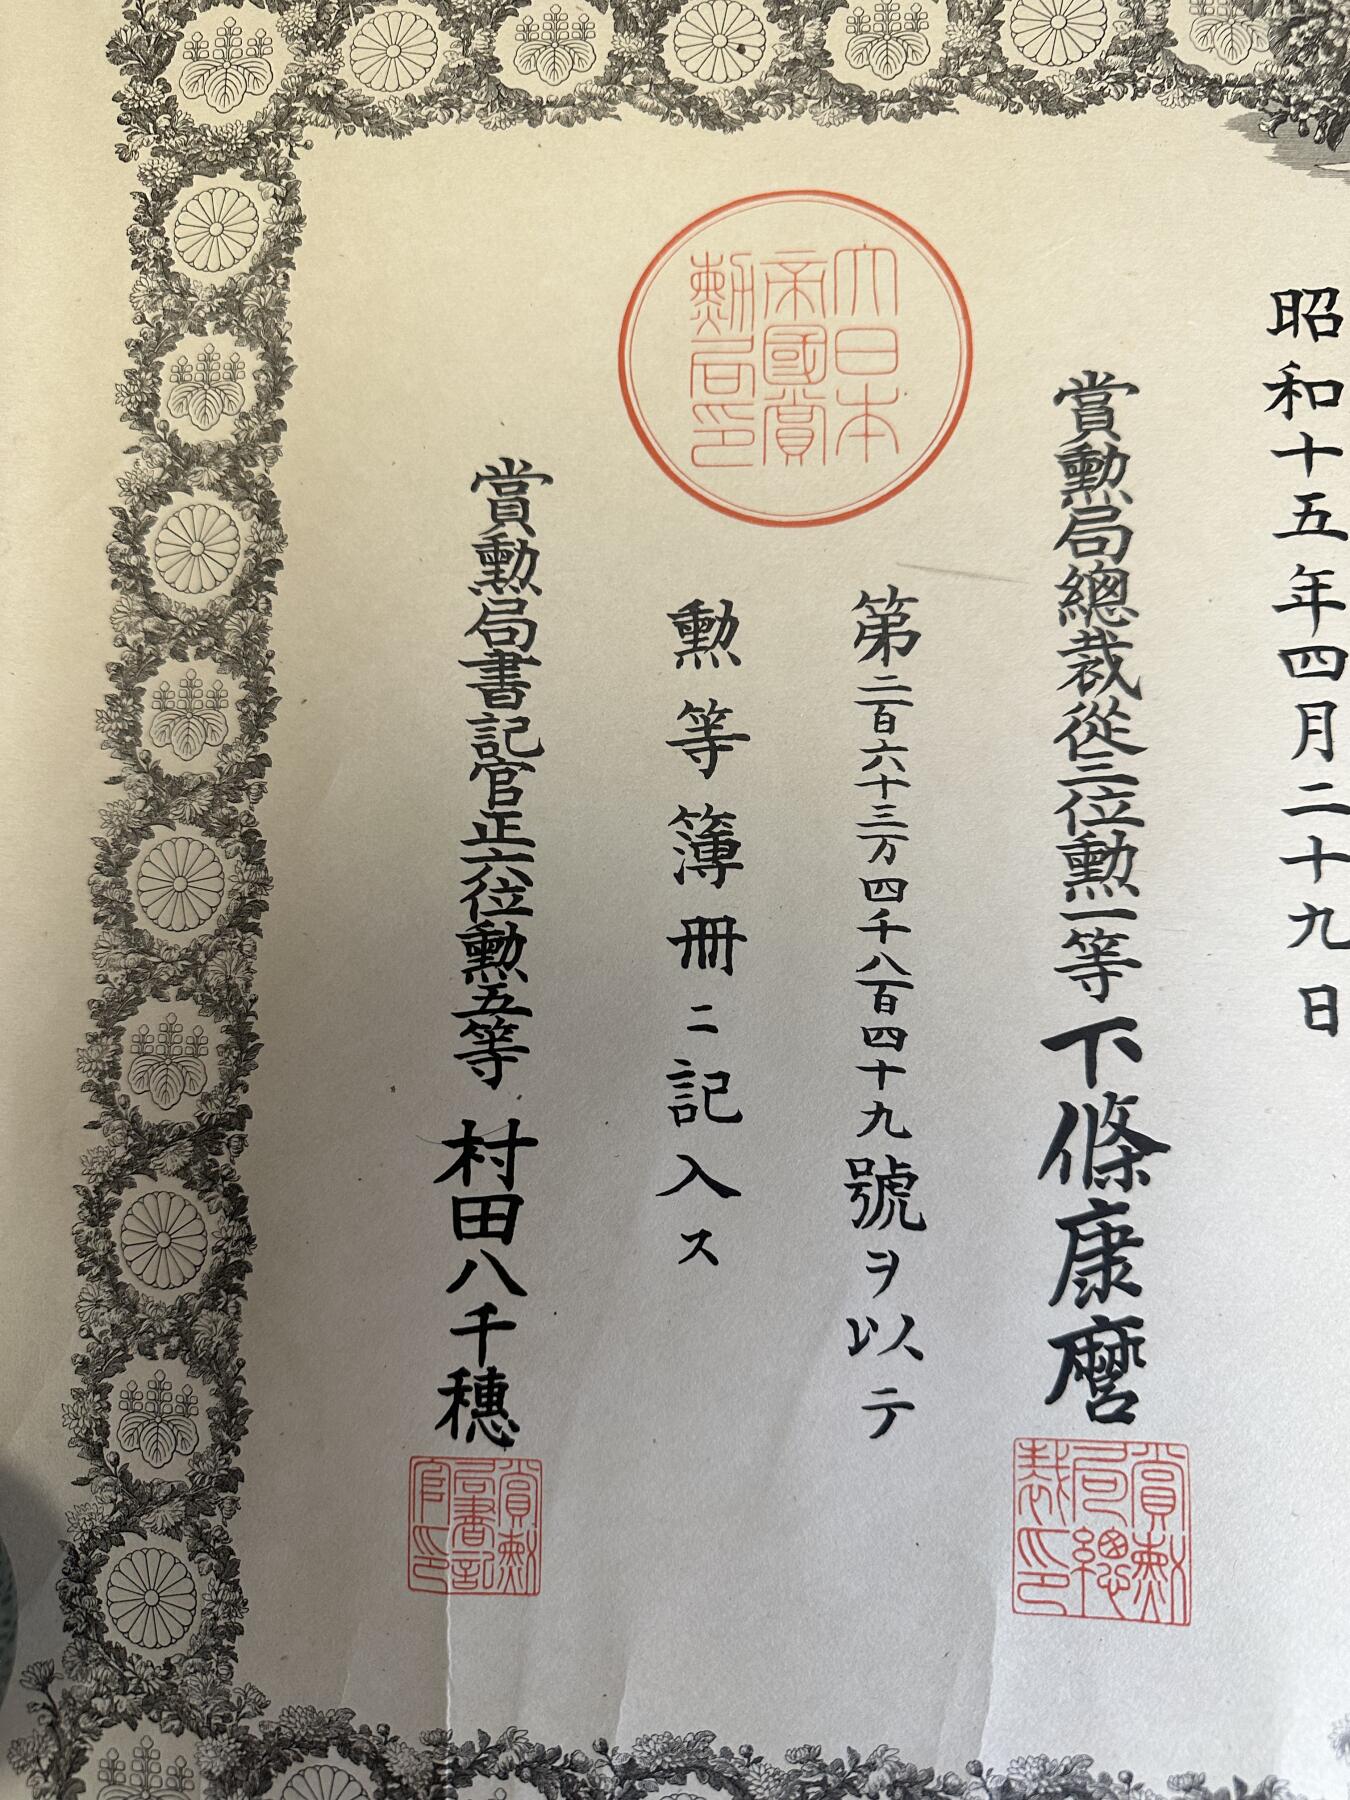 昭和十五年四月二十九日
賞勲局總裁從三位勲一等下條康麿
第二百六十三万四千八百四十九號ヲ以テ
勲等簿冊ニ記入ス
賞勲局書記官正六位勲五等村田八千穗
大日本
帝國賞
勲局印
賞勲
局總
裁印
賞勲
局書記
官印